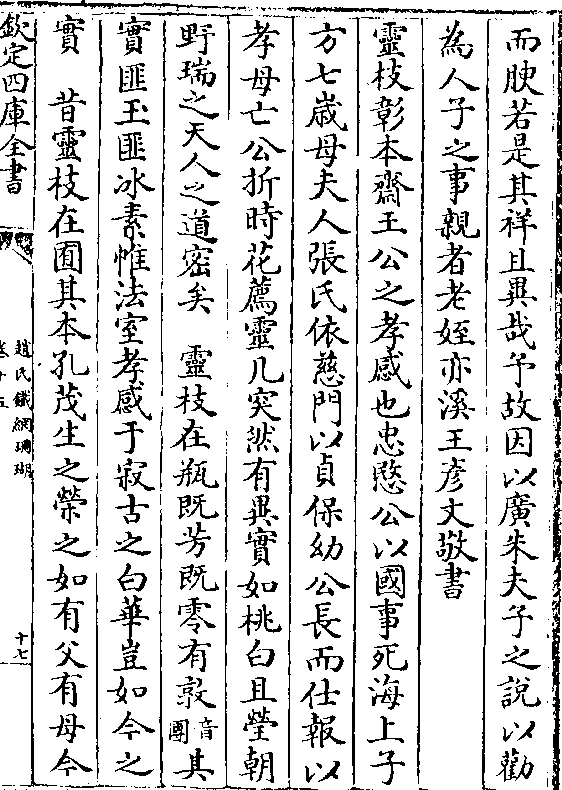 而腴若是其祥且異哉予故因以廣朱夫子之說以勸
為人子之事親者老姪亦溪王彦文敬書
靈枝彰本齋王公之孝感也忠愍公以國事死海上子
方七歳母夫人張氏依慈門以貞保幼公長而仕報以
孝母亡公折時花薦靈几突然有異實如桃白且瑩朝
野瑞之天人之道密矣　靈枝在瓶既芳既零有敦音團其
實匪玉匪冰素帷法室孝感于寂古之白華豈如今之
實　昔靈枝在囿其本孔茂生之榮之如有父有母今
欽定四庫全書
趙氏鐵網珊瑚
卷十五
十七